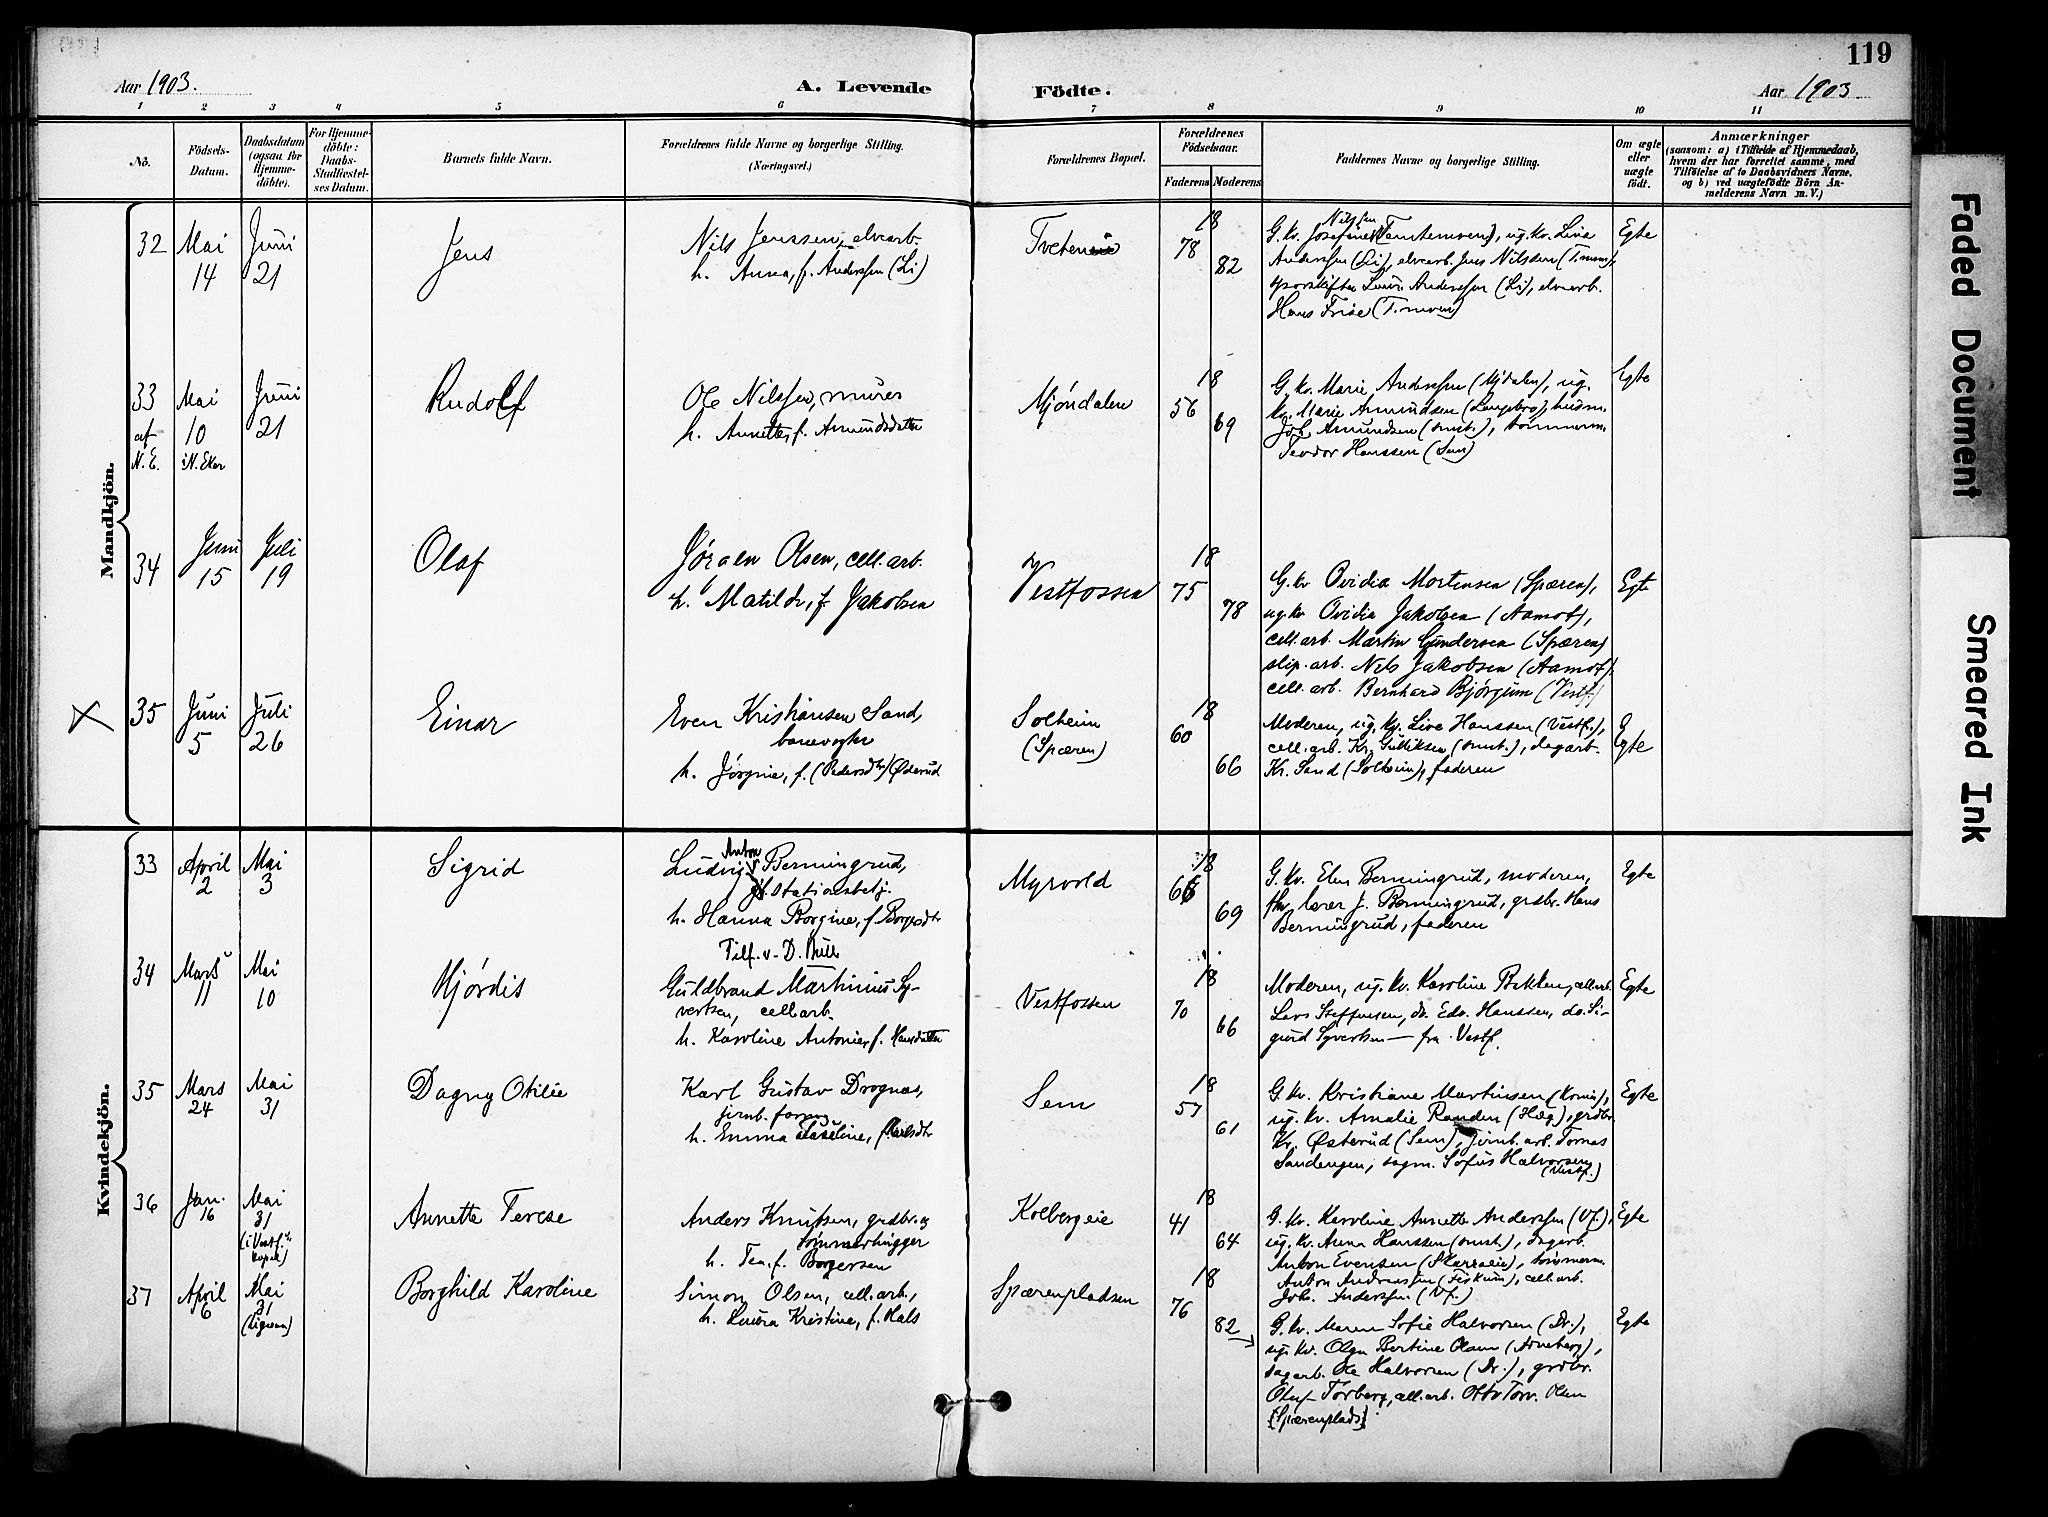 119
Aar 1903.
A. Levende
Födte.
Aar 1903
1 2 3 4 5 6 7 8 9 10 11
No.
Födsels-
Datum.
Daabsdatum
(ogsaa for
Hjemme-
döbte).
For Hjemme-
döbte:
Daabs-
Stadfæstel-
ses Datum.
Barnets fulde Navn.
Forældrenes fulde Navne og borgerlige Stilling.
(Næringsvei.)
Forældrenes Bopæl.
Forældrenes
Födselsaar.
Faderens
Moderens
Faddernes Navne og borgerlige Stilling.
Om ægte
eller
uægte
födt.
Anmærkninger
(saasom: a) i Tilfælde af Hjemmedaab,
hvem der har forrettet samme, med
Tilföielse af to Daabsvidners Navne,
og b) ved uægtefödte Börn An-
melderens Navn m. V.)
Mandkjön.
32
Mai
14
Juni
21
Jens
Nils Jenssen, elvearb.
h. Anna, f. Anderssen (Li)
Tveten
18
78
82
G. kv. Josefine Nilssen (Tomtemven), ug. kv. Lina
Anderssen (Li), elvearb. Jens Nilssen (T.mven),
sporskifter Anderssen (Li), elvearb.
Hans Frise (T.mven)
Egte
33
af
N. E.
Mai
10
i N. Eker
Juni
21
Rudolf
Ole Nilssen, murer
h. Annette, f. Amundsdatter
Mjøndalen
18
56
69
G. kv. Marie Anderssen (Mjdalen), ug.
kv. Marie Amundsen (Langebro), husm.
Joh. Amundsen (smst.), tømmerm.
Teodor Hanssen (Sem)
Egte
34
Juni
15
Juli
19
Olaf
Jørgen Olsen, cell. arb.
h. Matilde, f. Jakobsen
Vestfossen
18
75
78
G. kv. Ovidia Mortensen (Spæren),
ug. kv. Ovidia Jakobsen (Aamot),
cell. arb. Martin Gundersen (Spæren)
slip. arb. Nils Jakobsen (Aamot),
cell. arb. Bernhard Bjørgum (Vestf.)
Egte
35
Juni
5
Juli
26
Einar
Even Kristiansen Sand,
banevogter
h. Jørgine, f. (Pedersdtr) Østerud
Solheim
(Spæren)
18
60
66
Moderen, ug. kv. Live Hanssen (Vestf.),
cell. arb. Kr. Gulliksen (smst.), dagarb.
Kr. Sand (Solheim), faderen
Egte
Kvindekjön.
33
April
2
Mai
3
Sigrid
Ludvig Anton Berningrud,
stationsbetj.
h. Hanna Borgine, f. Borgesdtr
Myrvold
18
66
69
G. kv. Elen Berningrud, moderen,
fhv. lærer J. Berningrud, grdbr. Hans
Berningrud, faderen
Egte
34
Mars
11
Mai
10
Hjørdis
Tilf. v. D. Bull
Guldbrand Martinius Sy-
vertsen, cell arb.
h. Karoline Antonie, f. Hansdatter
Vestfossen
18
70
66
Moderen, ug. kv. Karoline Bakken, cell arb.
Lars Steffensen, do. Edv. Hanssen, do. Si-
gurd Syvertsen — fra Vestf.
Egte
35
Mars
24
Mai
31
Dagny Otilie
Karl Gustav Drognas,
jernb. form.
h. Emma Karoline, f. Karlsdtr
Sem
18
57
61
G. kv. Kristiane Martinsen (Komin),
ug. kv. Amalie Randen (Hæg), grdbr.
Kr. Østerud (Sem), jernb. arb. Tomas
Sandengen, sagm. Sofus Halvorsen
(Vestf.)
Egte
36
Jan.
16
Mai
31
(i Vestf.
kapel)
Annette Terese
Anders Knutsen, grdbr. og
tømmerhugger
h. Tea, f. Borgersen
Kolbergeie
18
41
64
G. kv. Karoline Annette Anderssen (Vf.),
ug. kv. Anna Hanssen (smst.), dagarb.
Anton Evensen (Skarraeie), tømmerm.
Anton Andreassen (Fiskum), cell. arb.
Joh. Anderssen (Vf.)
Egte
37
April
6
Mai
31
Borghild Karoline
Simon Olsen, cell. arb.,
h. Laura Kristine, f. Hals
Spærenpladsen
18
76
82
G. kv. Maren Sofie Halvorsen (Dr.),
ug. kv. Olga Bertine Olsen (Arneberg),
dagarb. Ole Halvorsen (Dr.), grdbr.
Oluf Torberg, cell. arb. Otto Torv. Olsen
(Spærenplads).
Egte
Faded Document
Smeared Ink